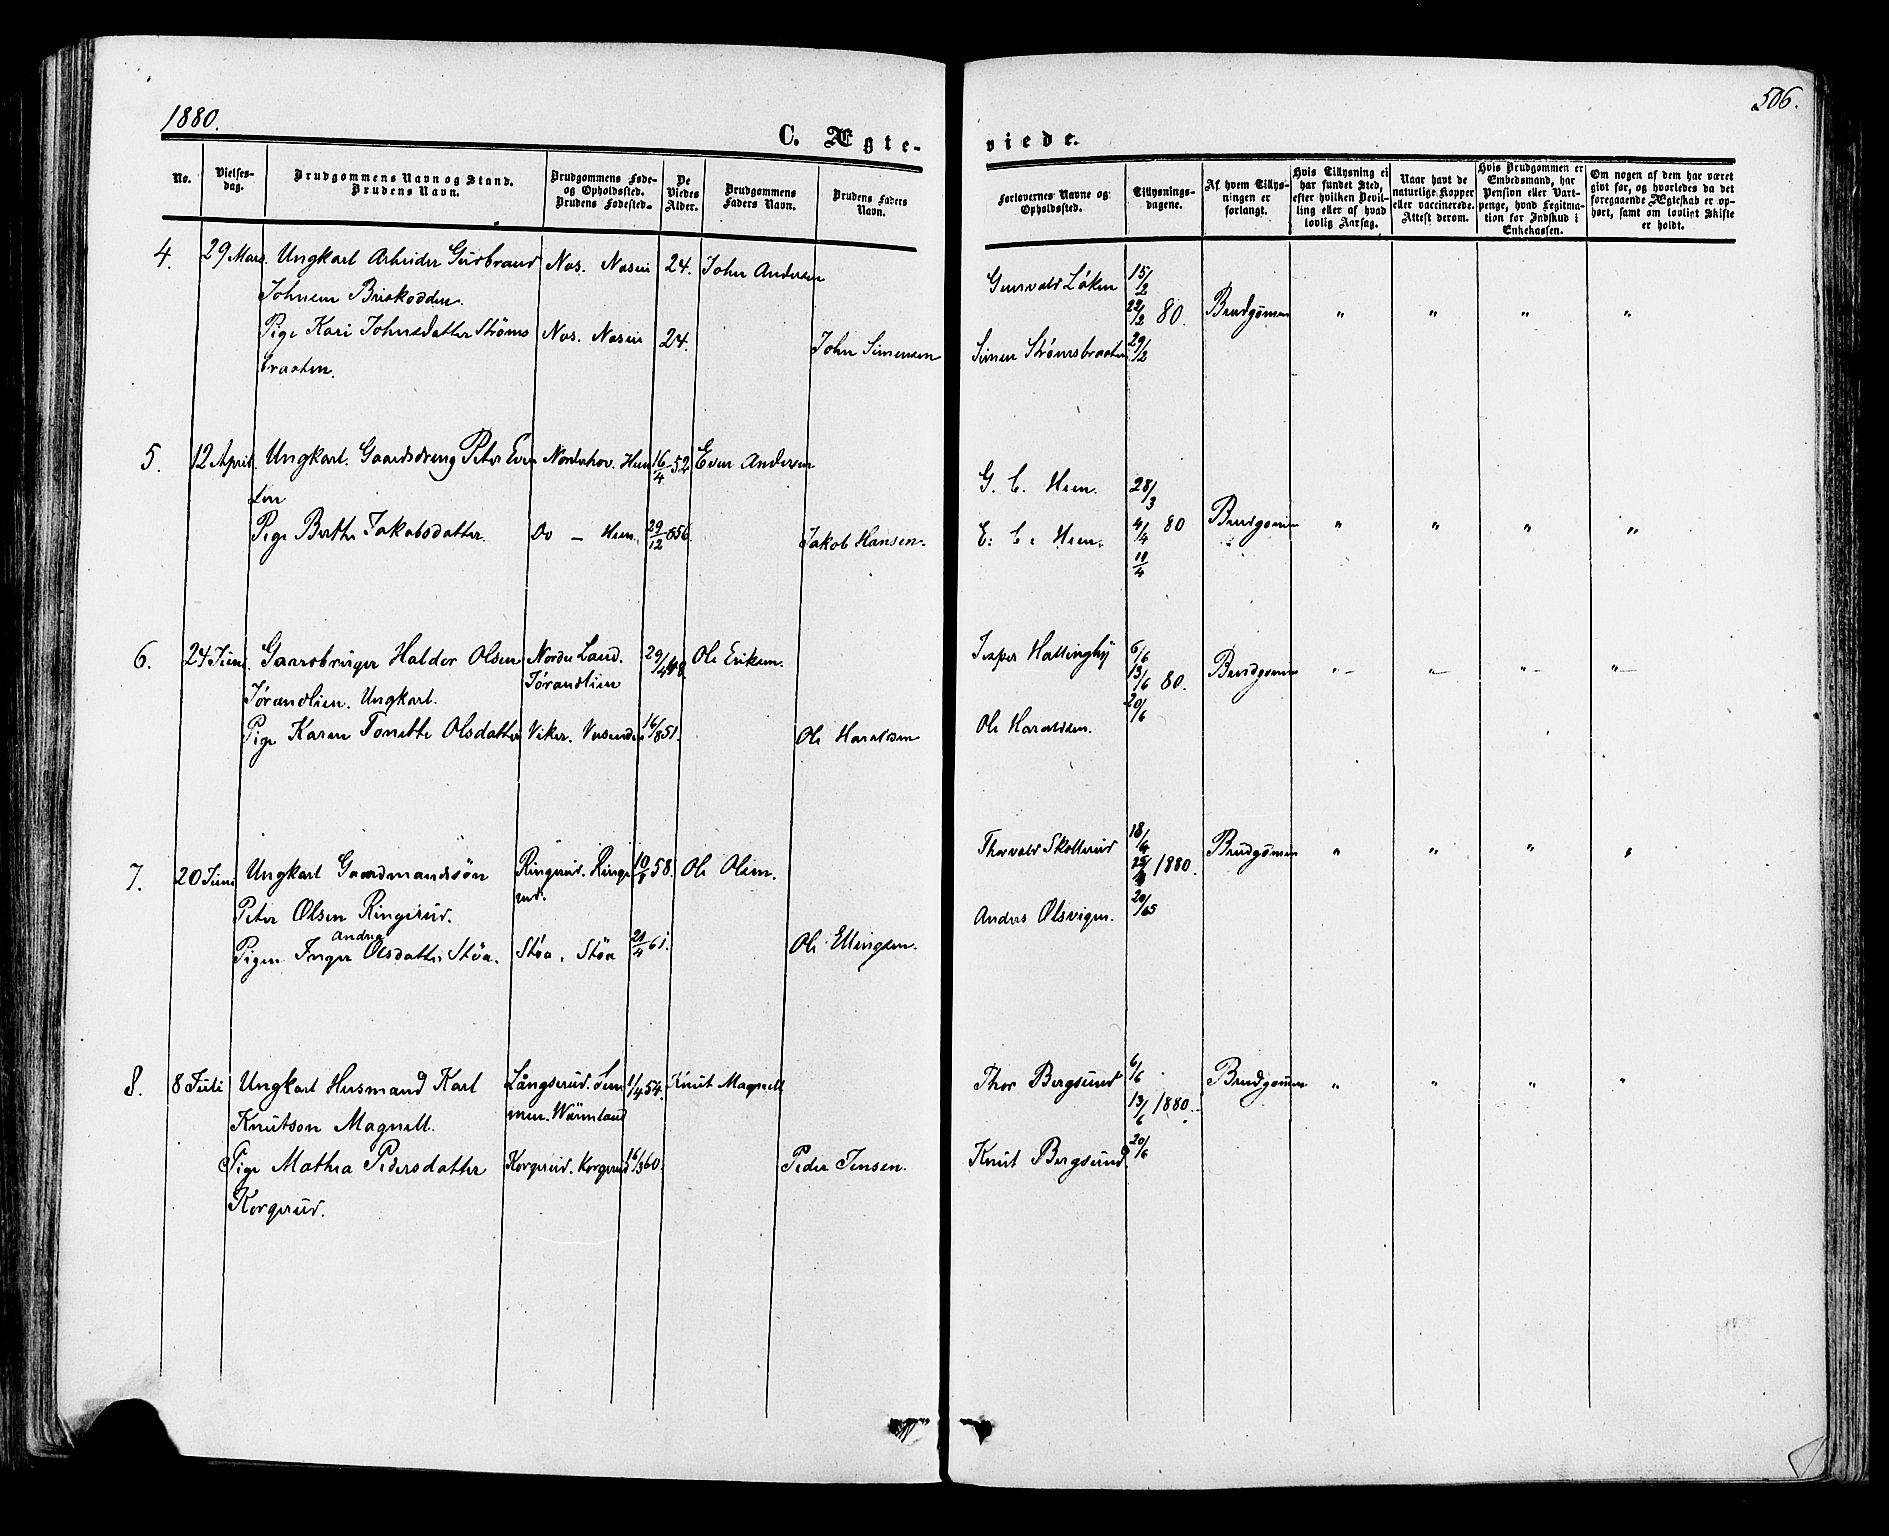 1880.
506.
C. Ægte-
viede.
No.
Vielses-
dag.
Brudgommens Navn og Stand.
Brudens Navn.
Brudgommens Føde-
og Opholdssted.
Brudens Fødested.
De
Viedes
Alder.
Brudgommens
Faders Navn.
Brudens Faders
Navn.
Forlovernes Navne og
Opholdssted.
Tillysnings-
dagene.
Af hvem Tillys-
ningen er
forlangt.
Hvis Tillysning ei
har fundet Sted,
efter hvilken Bevil-
ling eller af hvad
lovlig Aarsag.
Naar havt de
naturlige Kopper
eller vaccinerede.
Attest derom.
Hvis Brudgommen er
Embedsmand, har
Pension eller Vart-
penge, hvad Legitima-
tion for Indskud i
Enkekassen.
Om nogen af dem har været
gift før, og hvorledes da det
foregaaende Ægteskab er op-
hørt, samt om lovligt Skifte
er holdt.
4. 29 Mars. Ungkarl Arbeider Gudbrand Nos. Noseie 24. John Andersen
Johnsen Briskodden.
Gunvald Løken 15/2
22/2 80. Brudgomen " " " "
Pige Kari Johnsdatter Strøms Nos. Noseie 24. John Simensen
braaten.
Simen Strømsbraaten 29/2
5. 12 April. Ungkarl. Gaardsdreng Peter Even Norderhov. Heen 16/4-52 Even Andersen
sen
G. C. Heen. 28/3
Pige Berthe Jakobsdatter. Do - Heen. 29/12-856. Jakob Hansen.
E. C. Heen. 4/4 80 Brudgomen " " " "
11/4
6. 24 Juni. Gaardbruger Haldor Olsen Nordre Land. 29/4 48. Ole Eriksen.
Tørandlien. Ungkarl. Tørandlien
Jesper Hallingby 6/6
13/6 80. Brudgomen " " " "
20/6
Pige Karen Tonette Olsdatter Viker. Vesenden 16/8 51. Ole Haraldsen
Ole Haraldsen.
7. 20 Juni Ungkarl Gaardmandssøn Ringerud. Ringe 10/8 58. Ole Olsen.
Peter Olsen Ringerud. rud.
Thorvald Skollerud 18/4
25/4 1880. Brudgomen " " " "
Andrea
Pigen Inger Olsdatter Støa. Støa. Støa 21/4 61. Ole Ellingsen.
Anders Olsvigen. 20/65
8. 8 Juli Ungkarl Husmand Karl Långserud. Sem 1/4 54. Knut Magnell
Knutson Magnell. men. Wärmland
Thor Bergsund 6/6
13/6 1880. Brudgomen " " " "
Pige Mathea Pedersdatter Korgerud. Korgerud 16/3 60. Peder Jensen.
Korgerud.
Knut Bergsund. 20/6